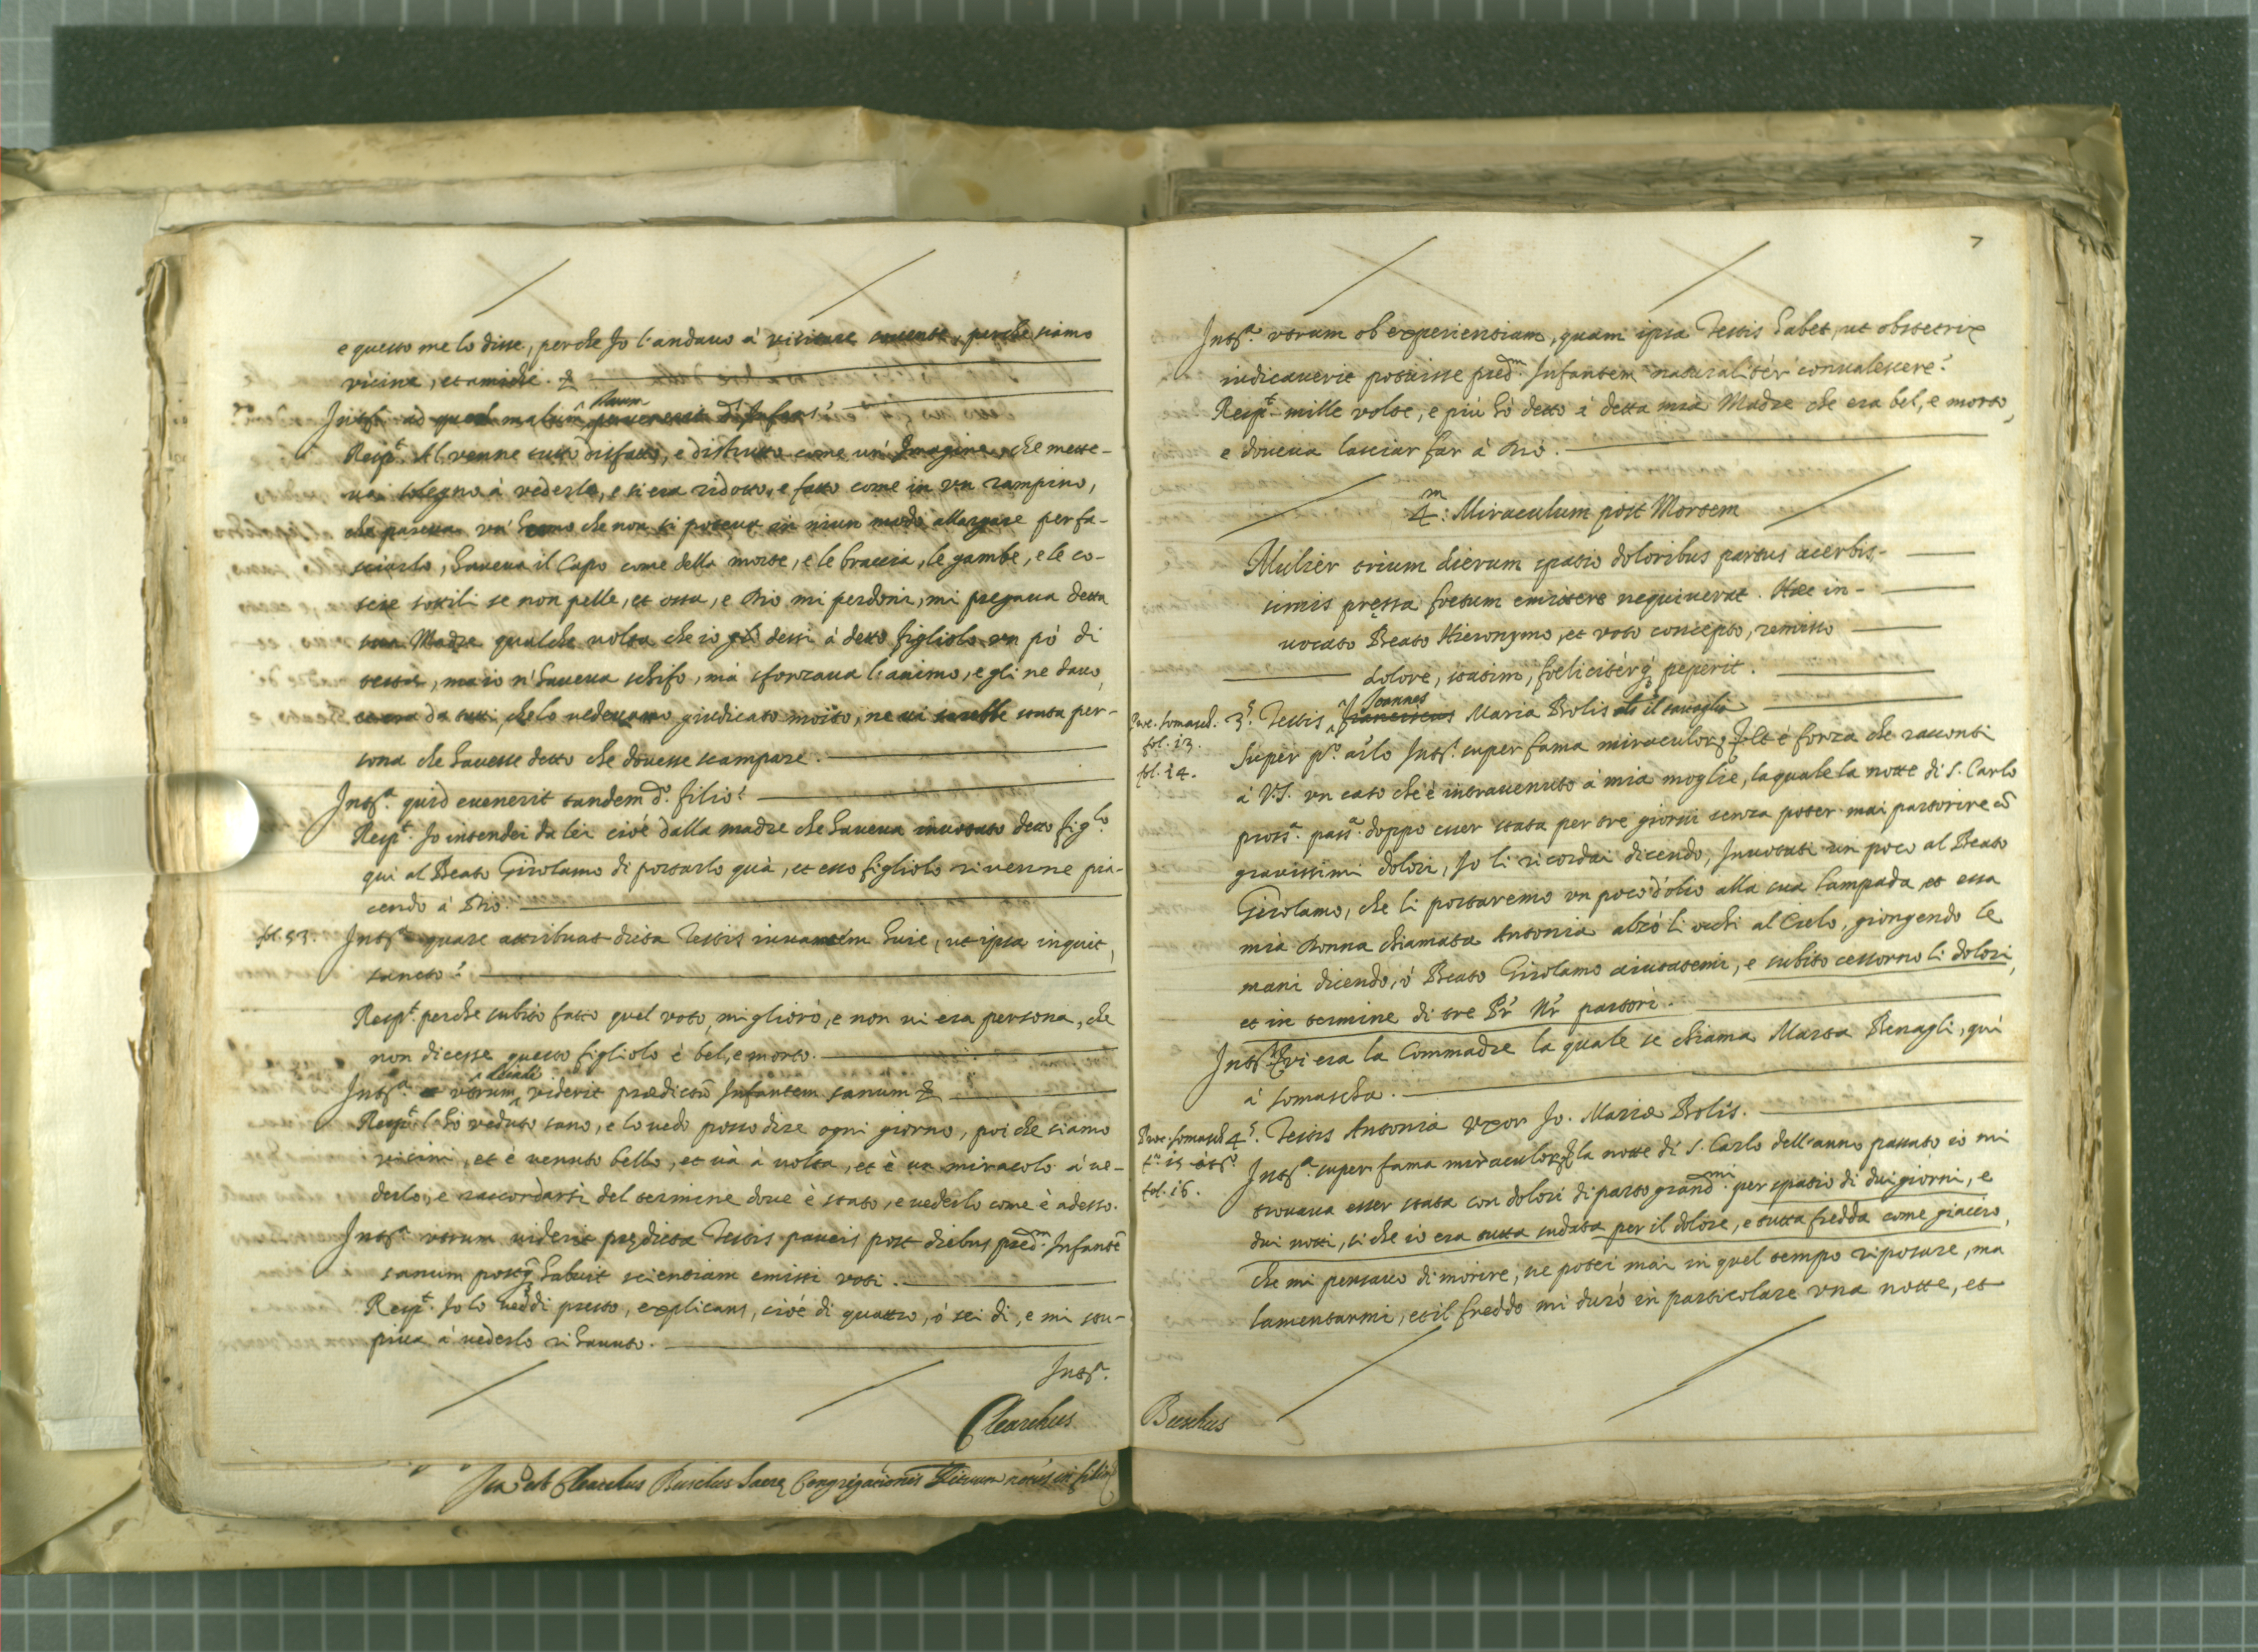 e questo me lo disse, perche Io l'andauo à visitare souente, perche siamo
vicine, et amiche. &
Intª. ad quem malum statum peruenerit dˢ. Infans?
Respᵗ. Al venne tutto disfatto, e distrutto come un' Imagine, che mette-
ua sdegno à vederlo, e si era ridotto, e fatto come in vn rampino,
che pareua vn' homo che non si poteua in niun modo allargare per fa-
sciarlo, haueua il Capo come della morte, e le braccia, le gambe, e le co-
scie sottili se non pelle, et ossa, e Dio mi perdoni, mi pregaua detta
sua Madre qualche uolta che io gli dessi à detto figliolo vn pò di
tetta, ma io n'haueua schifo, mà sforzaua l'animo, e gli ne dauo,
et era da tutti, che lo uedeuano giudicato morto, ne ui sarebbe stata per-
sona che hauesse detto che douesse scampare.
Intª. quid euenerit tandem dᵒ. filio?
Respᵗ. Io intendei da lei cioè dalla madre che haueua inuotato detto figˡᵒ.
qui al Beato Girolamo di portarlo quà, et esso figliolo riuenne pia-
cendo à Dio.
fol. 53. Intª. quare attribuat dicta Testis inuantem huic, ut ipsa inquit,
sancto?
Respᵗ. perche subito fatto quel voto, migliorò, e non ui era persona, che
non dicesse questo figliolo è bel, e morto.
Intª. utrum deinde viderit prædictū Infantem sanum &
Respᵗ. l'hò veduto sano, e lo uedo posso dire ogni giorno, poi che siamo
vicini, et è venuto bello, et uà à uolta, et è un miracolo à ue-
derlo, e raccordarsi del termine doue è stato, e uederlo come è adesso.
Intª. utrum uiderit prędicta Testis paucis post diebus predᵐ. Infantē
sanum postq̃ habuit scientiam emissi voti.
Respᵗ. Io lo ueddi presto, explicans, cioè di quattro, ò sei dì, e mi stu-
piua à uederlo rihauuto.
Intª.
Clearchus
Ita est Clearchus Buschus Sacrę Congregationis Rituum
7
Intª. utrum ob experientiam, quam ipsa Testis habet, ut obstetrix
iudicauerit potuisse predᵐ. Infantem naturalitèr conualescere?
Respᵗ. mille uolte, e più hò detto à detta mia Madre che era bel, e morto,
e doueua lasciar far à Dio.
4ᵐ: Miraculum post Mortem
Mulier trium dierum spatio doloribus partus acerbis-
simis pręssa foetum emittere nequiuerat. Hæc in-
uocato Beato Hieronymo, et voto concepto, remisso
dolore, statim, foelicitérq; peperit.
Proc. Somasch. fol. 13. fol. 14.
3ˢ. Testis Franciscus Joannes Maria Bolis als il sauaglia
Super pᵒ. arˡᵒ Intˢ. super fama miraculorꝫ Respᵗ è forza che racconti
à V.S. vn caso che è intrauenuto à mia moglie, la quale la notte di S. Carlo
prossª. passª. doppo esser stata per tre giorni senza poter mai partorire cō
grauissimi dolori, Io li ricordai dicendo, Inuotati un poco al Beato
Girolamo, che li portaremo vn poco d'olio alla sua lampada et essa
mia Donna chiamata Antonia alzò li occhi al Cielo, giongendo le
mani dicendo, ò Beato Girolamo aiutatemi, e subito cessorno li dolori,
et in termine di tre Pr̃ Nr̃ partorì.
Intª. Qui era la Commadre la quale se chiama Marta Benagli, quì
à Somascha.
Proc. Somasch fol. 16.
4ˢ. Testis Antonia Vxor Jo. Mariæ Bolis.
Intª. super fama miraculorꝫ Respᵗ la notte di S. Carlo dell'anno passato io mi
trouaua esser stata con dolori di parto grandᵐⁱ per spatio di dui giorni, e
dui notti, si che io era tutta sudata per il dolore, e tutta fredda come giaccio,
che mi pensauo di morire, ne potei mai in quel tempo riposare, ma
lamentarmi, et il freddo mi durò in particolare vna notte, et
Buschus